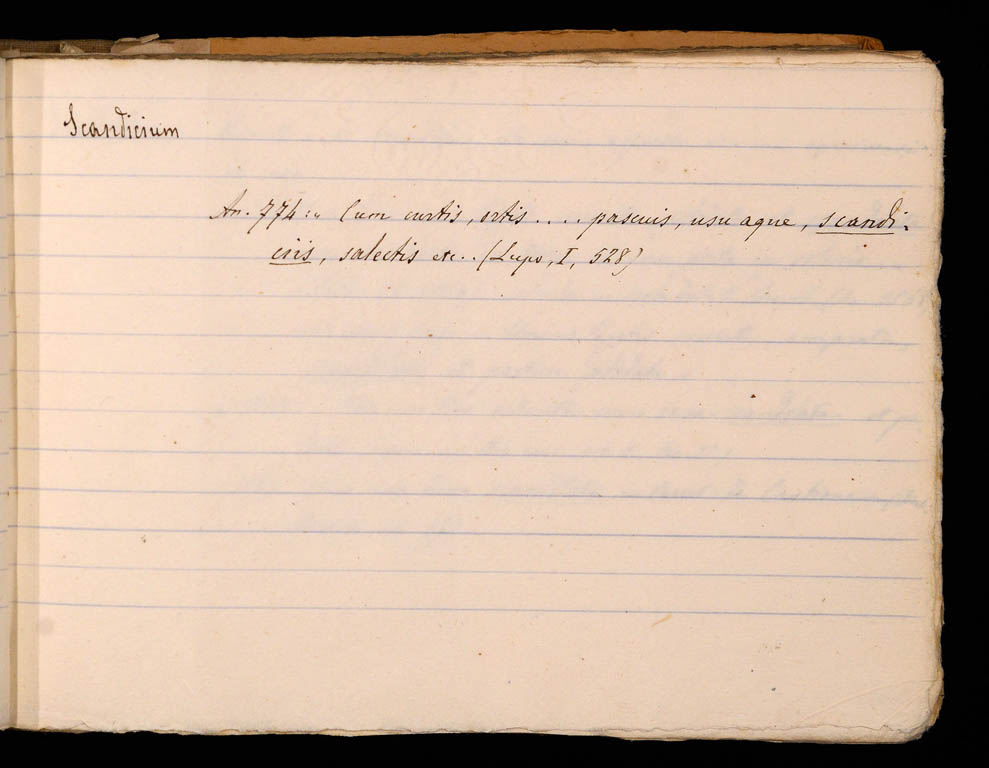 Scandicium
An. 774:" Cum curtis, ortis .... pascuis, usu aque, scandi-
ciis, salectis etc.. (Lupo, I, 528)